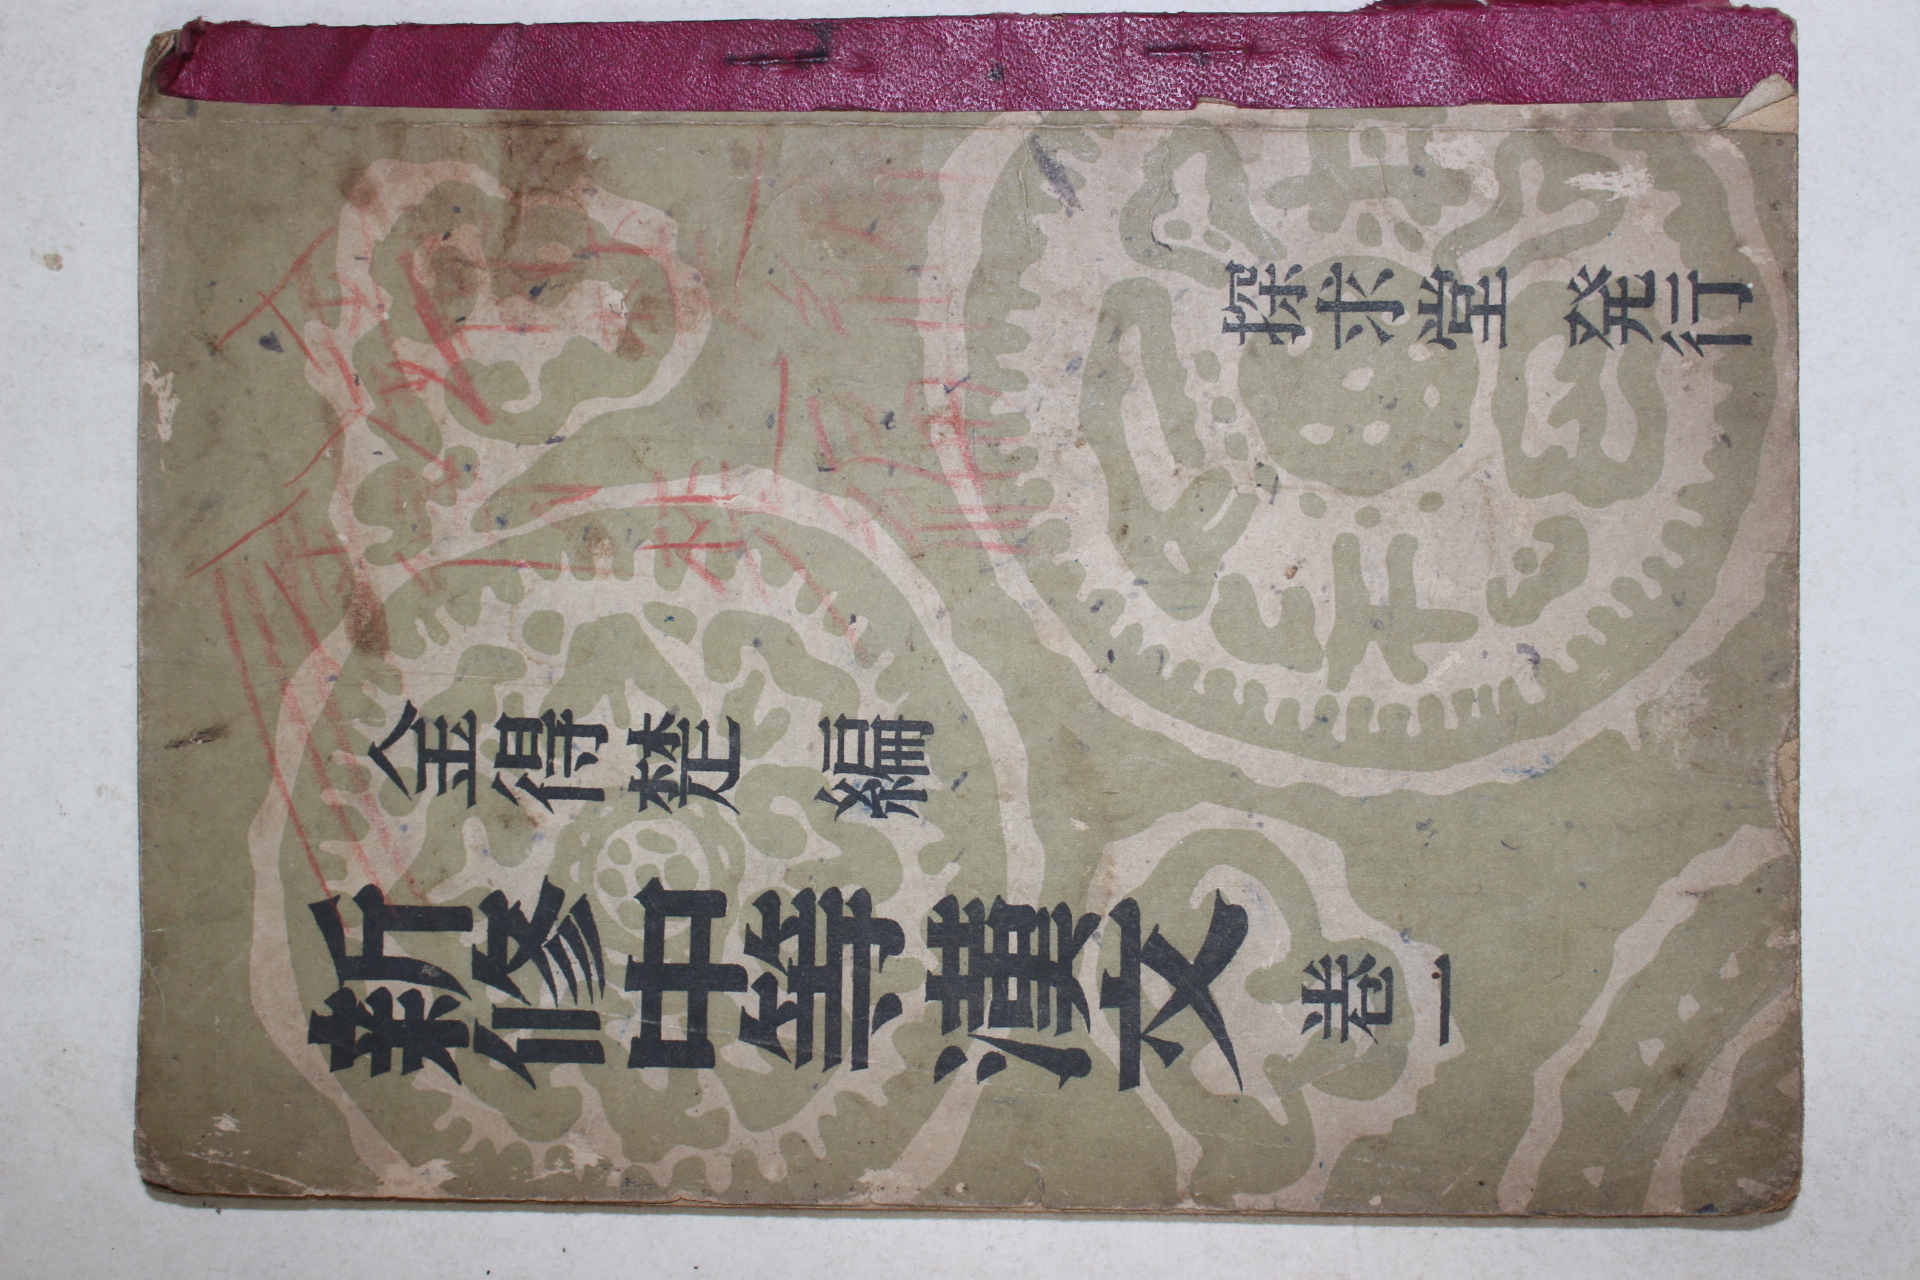 新修中等漢文 卷一
金得楚 編
探求堂 発行